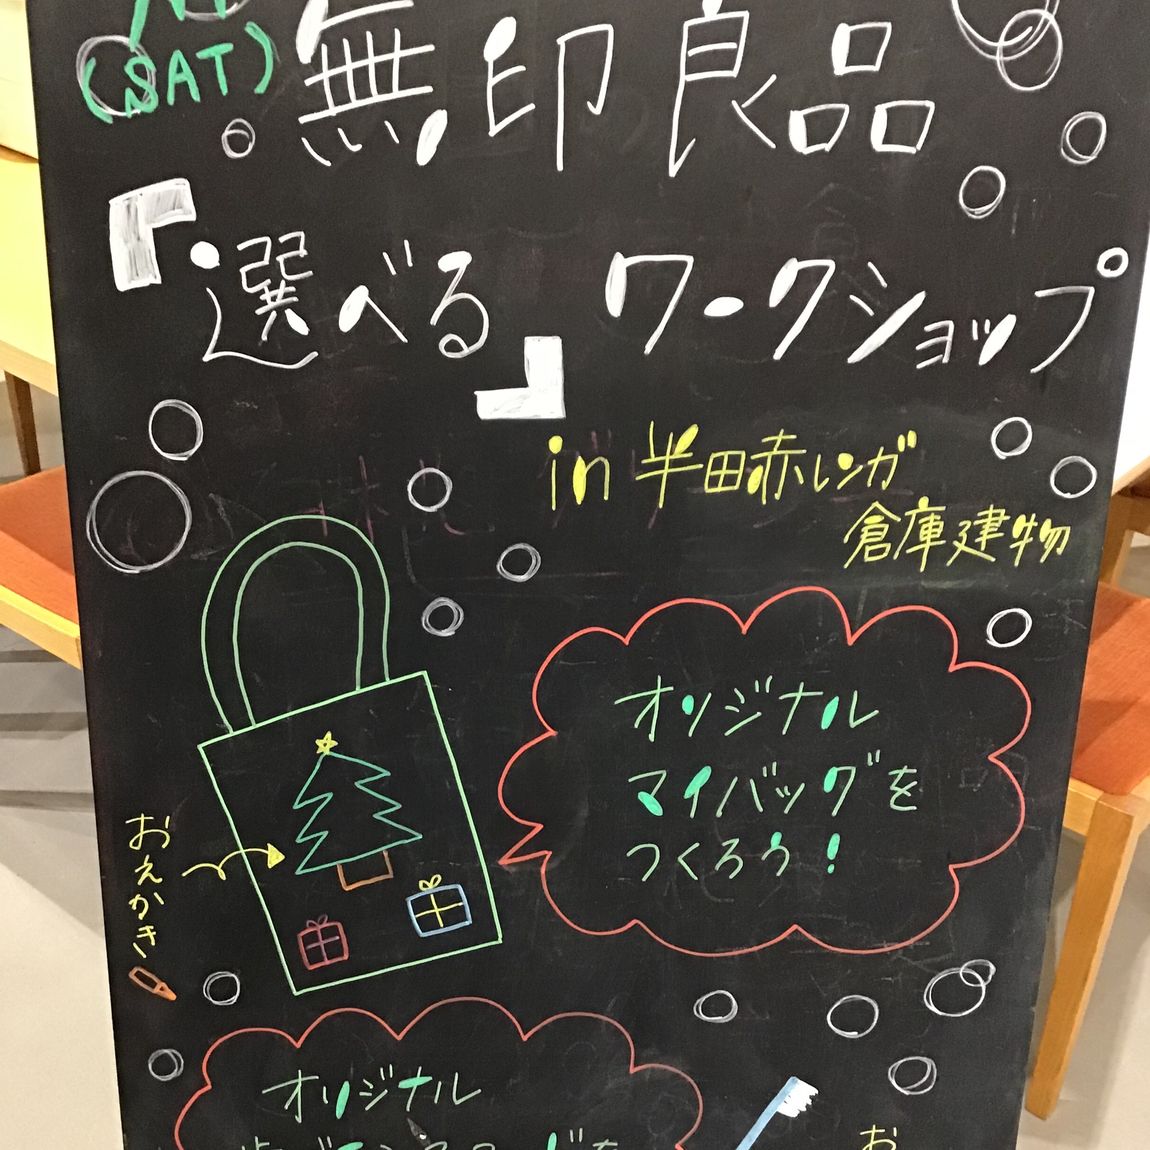 (SAT)
無印良品
『選べる』ワークショップ
in 半田赤レンガ
倉庫建物
オリジナル
マイバッグを
つくろう!
おえかき
オリジナル
お